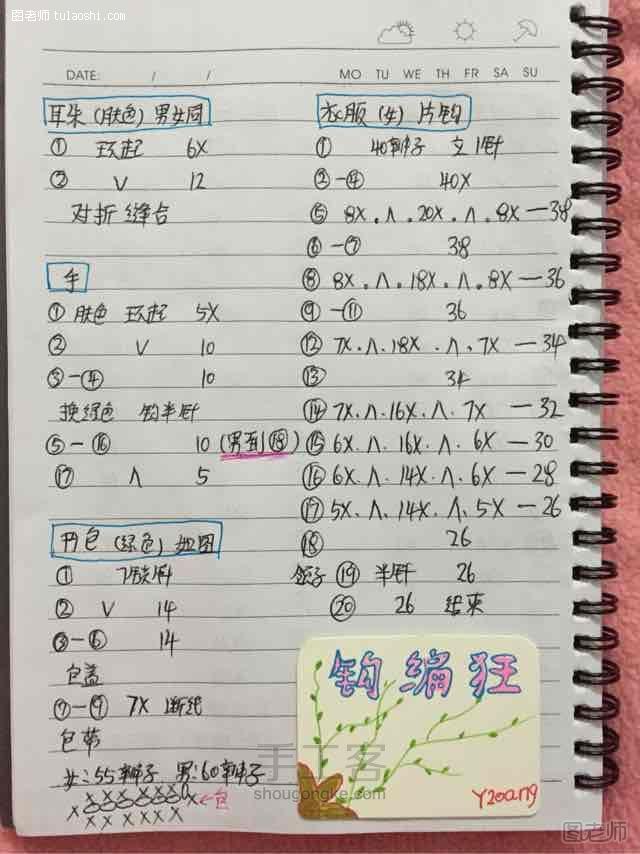 图老师
http://www.tulaoshi.com
DATE: / /
MO TU WE TH FR SA SU
耳朵(肤色)男女同
① 环起 6X
② V 12
对折 缝合
手
① 肤色 环起 5X
② V 10
③-④ 10
换绿色 钩半针
⑤-⑯ 10 (男到⑱)
⑰ Λ 5
书包(绿色)如图
① 7锁针
② V 14
③-⑥ 14
包盖
⑦-⑨ 7X 断线
包带
女:55辫子 男:60辫子
←包
衣服(女)片钩
① 40辫子 立1针
②-④ 40X
⑤ 8X.Λ.20X.Λ.8X—38
⑥-⑦ 38
⑧ 8X.Λ.18X.Λ.8X—36
⑨-⑪ 36
⑫ 7X.Λ.18X.Λ.7X—34
⑬ 34
⑭ 7X.Λ.16X.Λ.7X—32
⑮ 6X.Λ.16X.Λ.6X—30
⑯ 6X.Λ.14X.Λ.6X—28
⑰ 5X.Λ.14X.Λ.5X—26
⑱ 26
⑲ 半针 26
⑳ 26 结束
钩编狂
Y20ang
手工客
shougongke.com
图老师